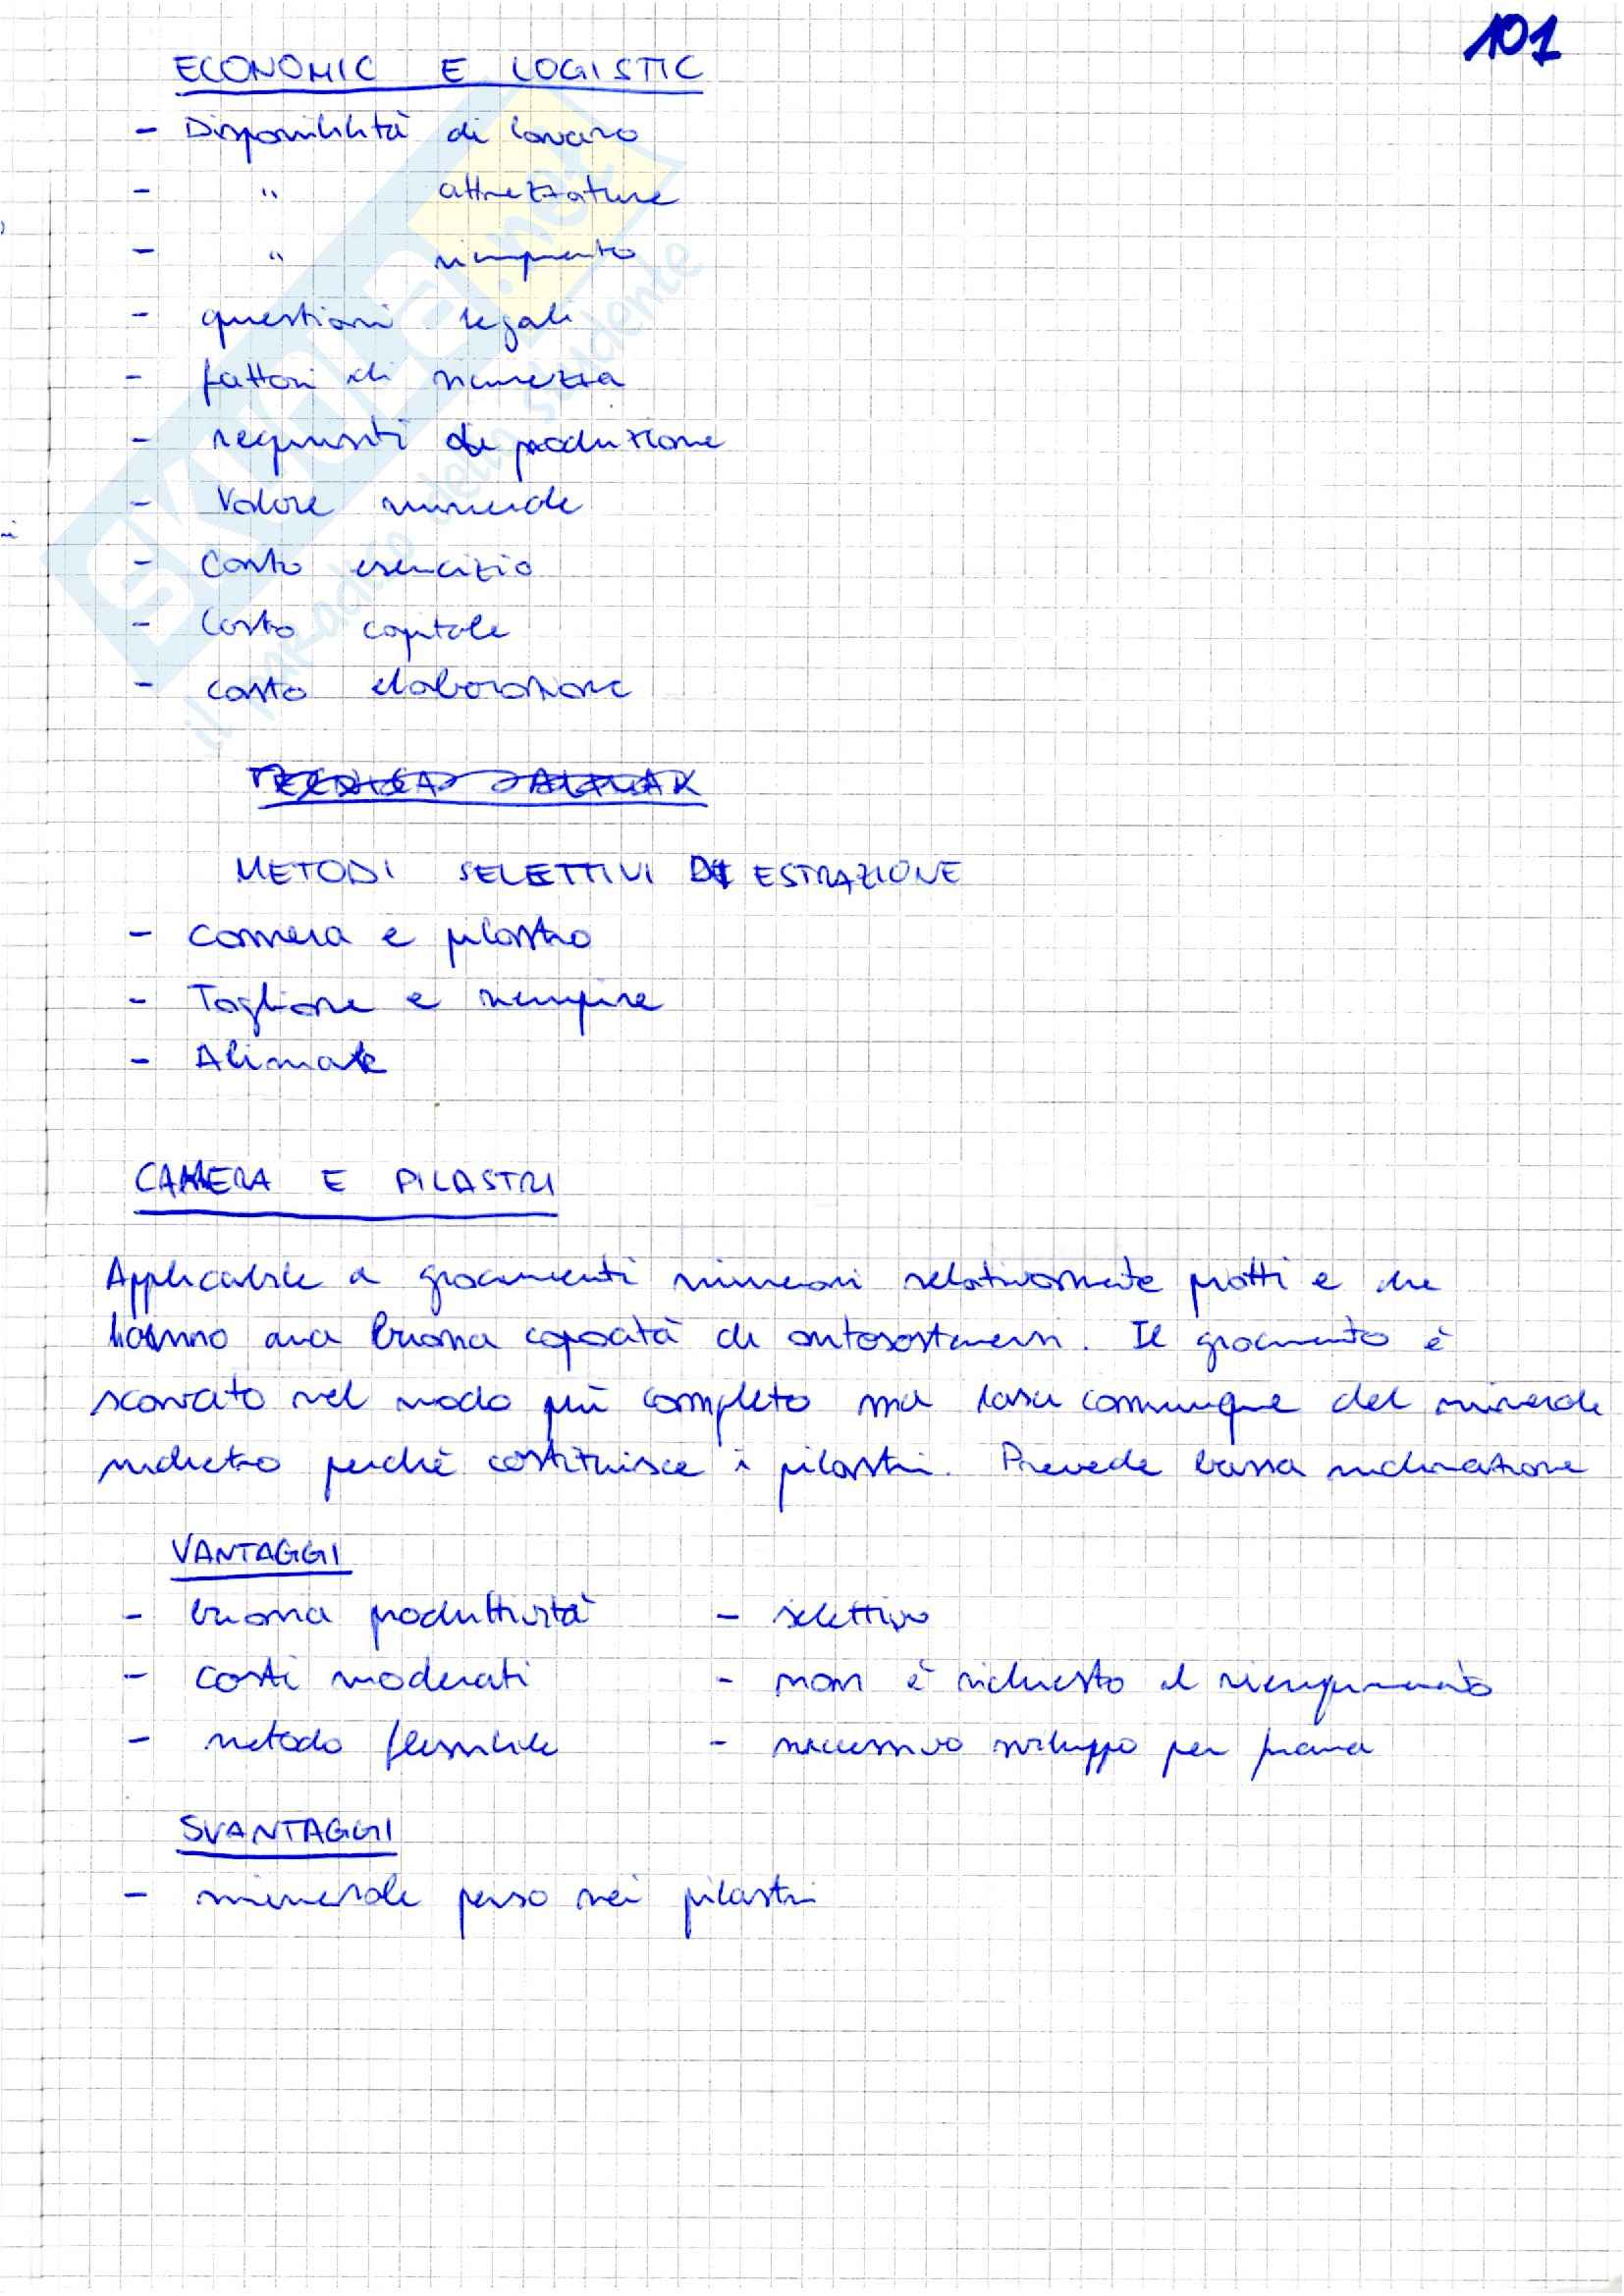 101
ECONOMIC E LOGISTIC
- Disponibilità di lavoro
- " attrezzature
- " riempimento
- questioni legali
- fattori di sicurezza
- requisiti di produzione
- Valore minerale
- Costo esercizio
- Costo capitale
- costo elaborazione
METODI SELETTIVI DI ESTRAZIONE
- camera e pilastro
- Tagliare e riempire
- Alimak
CAMERA E PILASTRI
Applicabile a giacimenti minerari relativamente piatti e che
hanno una buona capacità di autosostenersi. Il giacimento è
scavato nel modo più completo ma lascia comunque del minerale
indietro perchè costituisce i pilastri. Prevede bassa inclinazione
VANTAGGI
- buona produttività - selettivo
- costi moderati - non è richiesto il riempimento
- metodo flessibile - successivo sviluppo per frana
SVANTAGGI
- minerale perso nei pilastri
SKUOLA.net
il paradiso dello studente